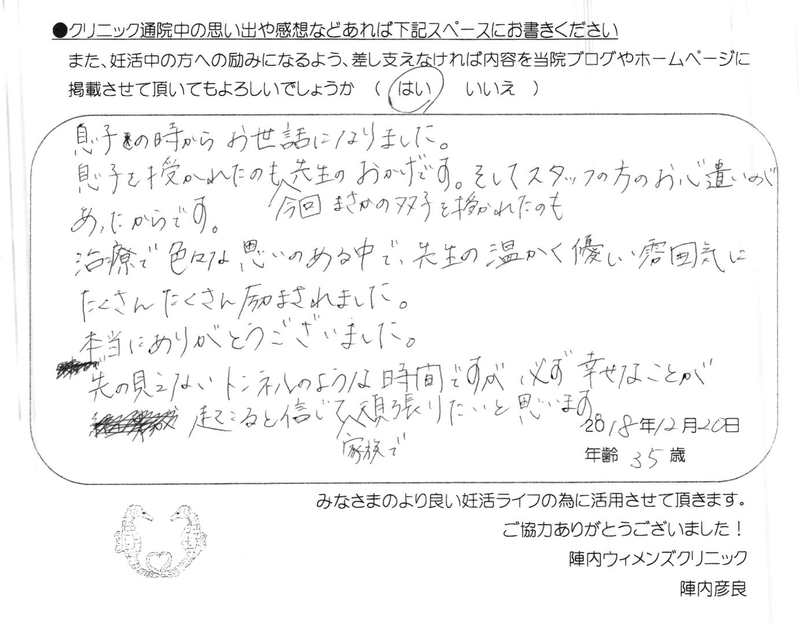 ●クリニック通院中の思い出や感想などあれば下記スペースにお書きください
また、妊活中の方への励みになるよう、差し支えなければ内容を当院ブログやホームページに
掲載させて頂いてもよろしいでしょうか （ はい いいえ ）
息子の時からお世話になりました。
息子を授かれたのも先生のおかげです。そしてスタッフの方のお心遣いが
今回 まさかの双子を授かれたのも
あったからです。
治療で色々な思いのある中で、先生の温かく優しい雰囲気に
たくさんたくさん励まされました。
本当にありがとうございました。
先の見えないトンネルのような時間ですが必ず幸せなことが
起こると信じて頑張りたいと思います。
家族で
2018年12月20日
年齢 35 歳
みなさまのより良い妊活ライフの為に活用させて頂きます。
ご協力ありがとうございました！
陣内ウィメンズクリニック
陣内彦良